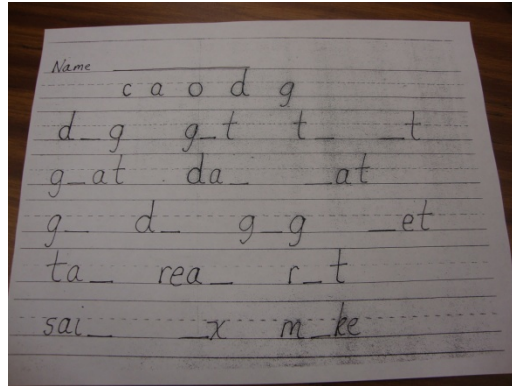 Name ____________
c a o d g
d_g g_t t_ _t
g_at da_ _at
g_ d_ g_g _et
ta_ rea_ r_t
sai_ _x m_ke